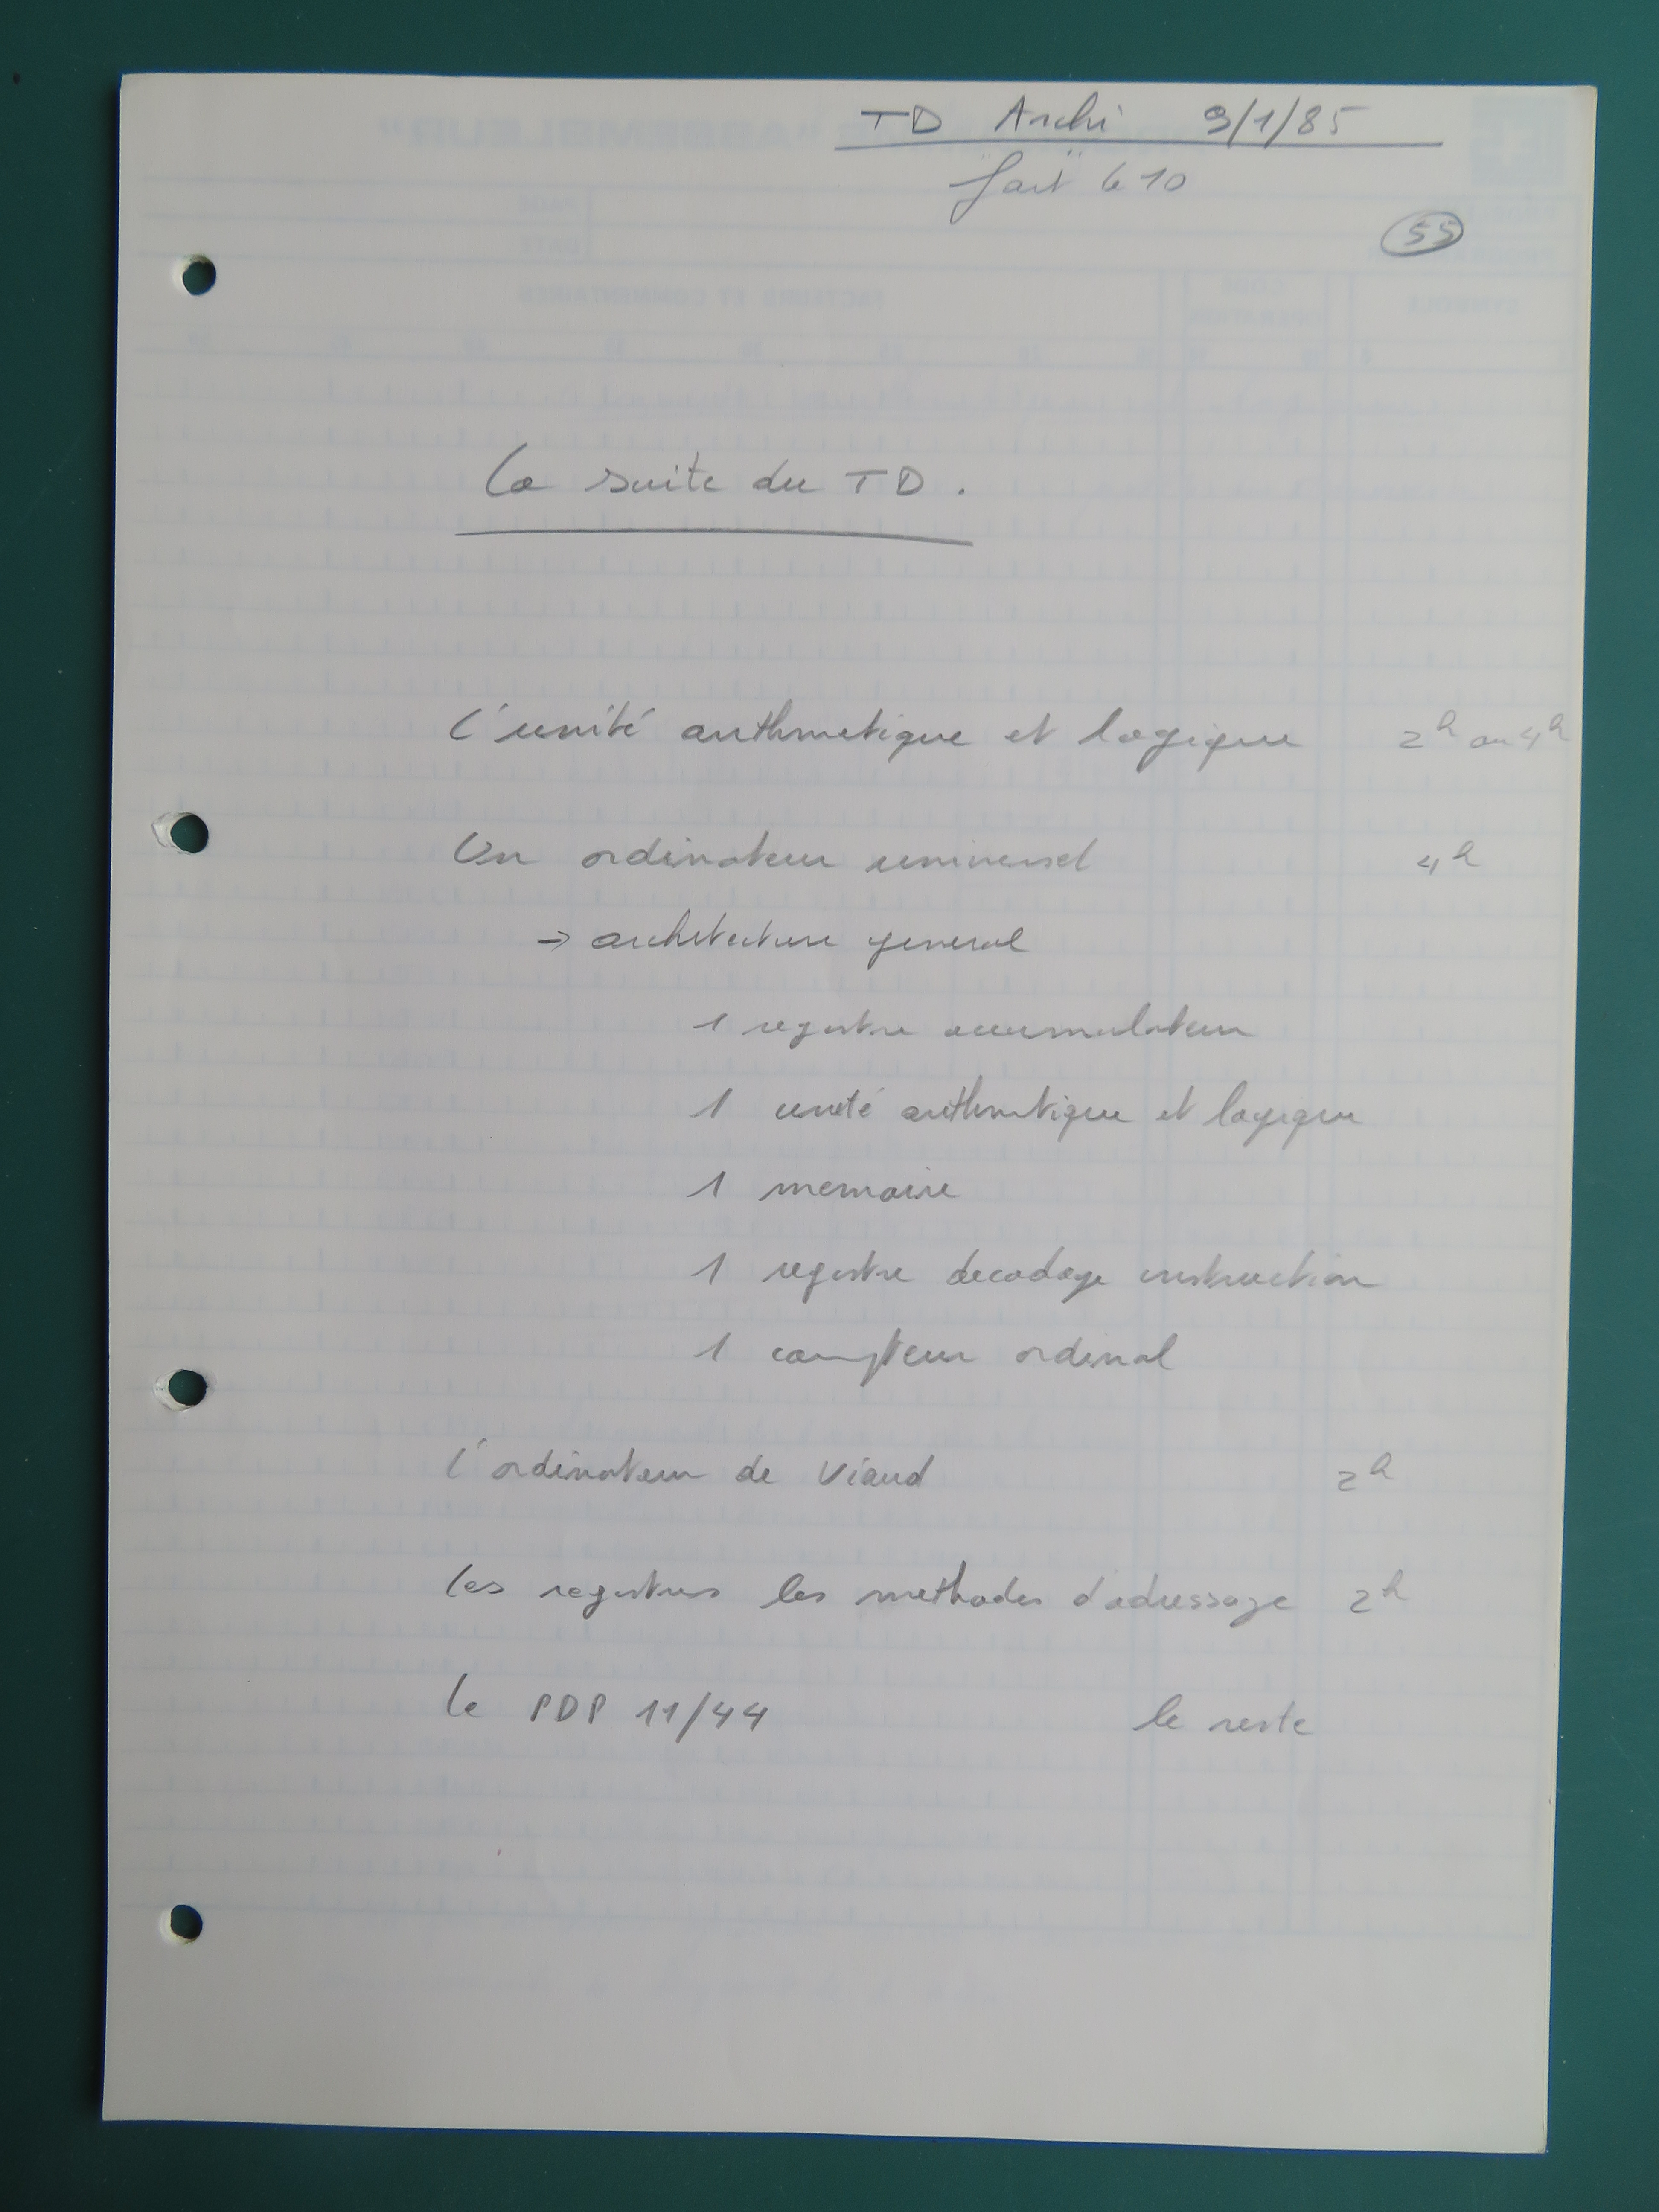 TD Archi 9/1/85
fait le 10
55
La suite du TD.
L'unité arithmetique et logique 2h ou 4h
Un ordinateur universel 4h
→ architecture general
1 registre accumulateur
1 unité arithmetique et logique
1 memoire
1 registre decodage instruction
1 compteur ordinal
L'ordinateur de Viaud 2h
Les registres les methodes d'adressage 2h
Le PDP 11/44 le reste